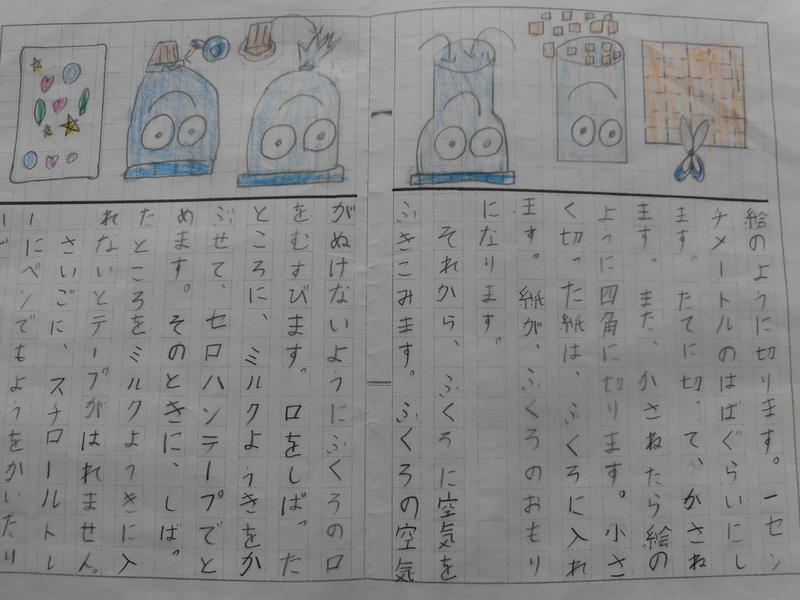 絵のように切ります。一セン
チメートルのはばぐらいにし
ます。たてに切って、かさね
ます。また、かさねたら絵の
ように四角に切ります。小さ
く切った紙は、ふくろに入れ
ます。紙が、ふくろのおもり
になります。
それから、ふくろに空気を
ふきこみます。ふくろの空気
がぬけないようにふくろの口
をむすびます。口をしばった
ところに、ミルクようきをか
ぶせて、セロハンテープでと
めます。そのときに、しばっ
たところをミルクようきに入
れないとテープがはれません。
さいごに、スチロールトレ
ーにペンでもようをかいたり